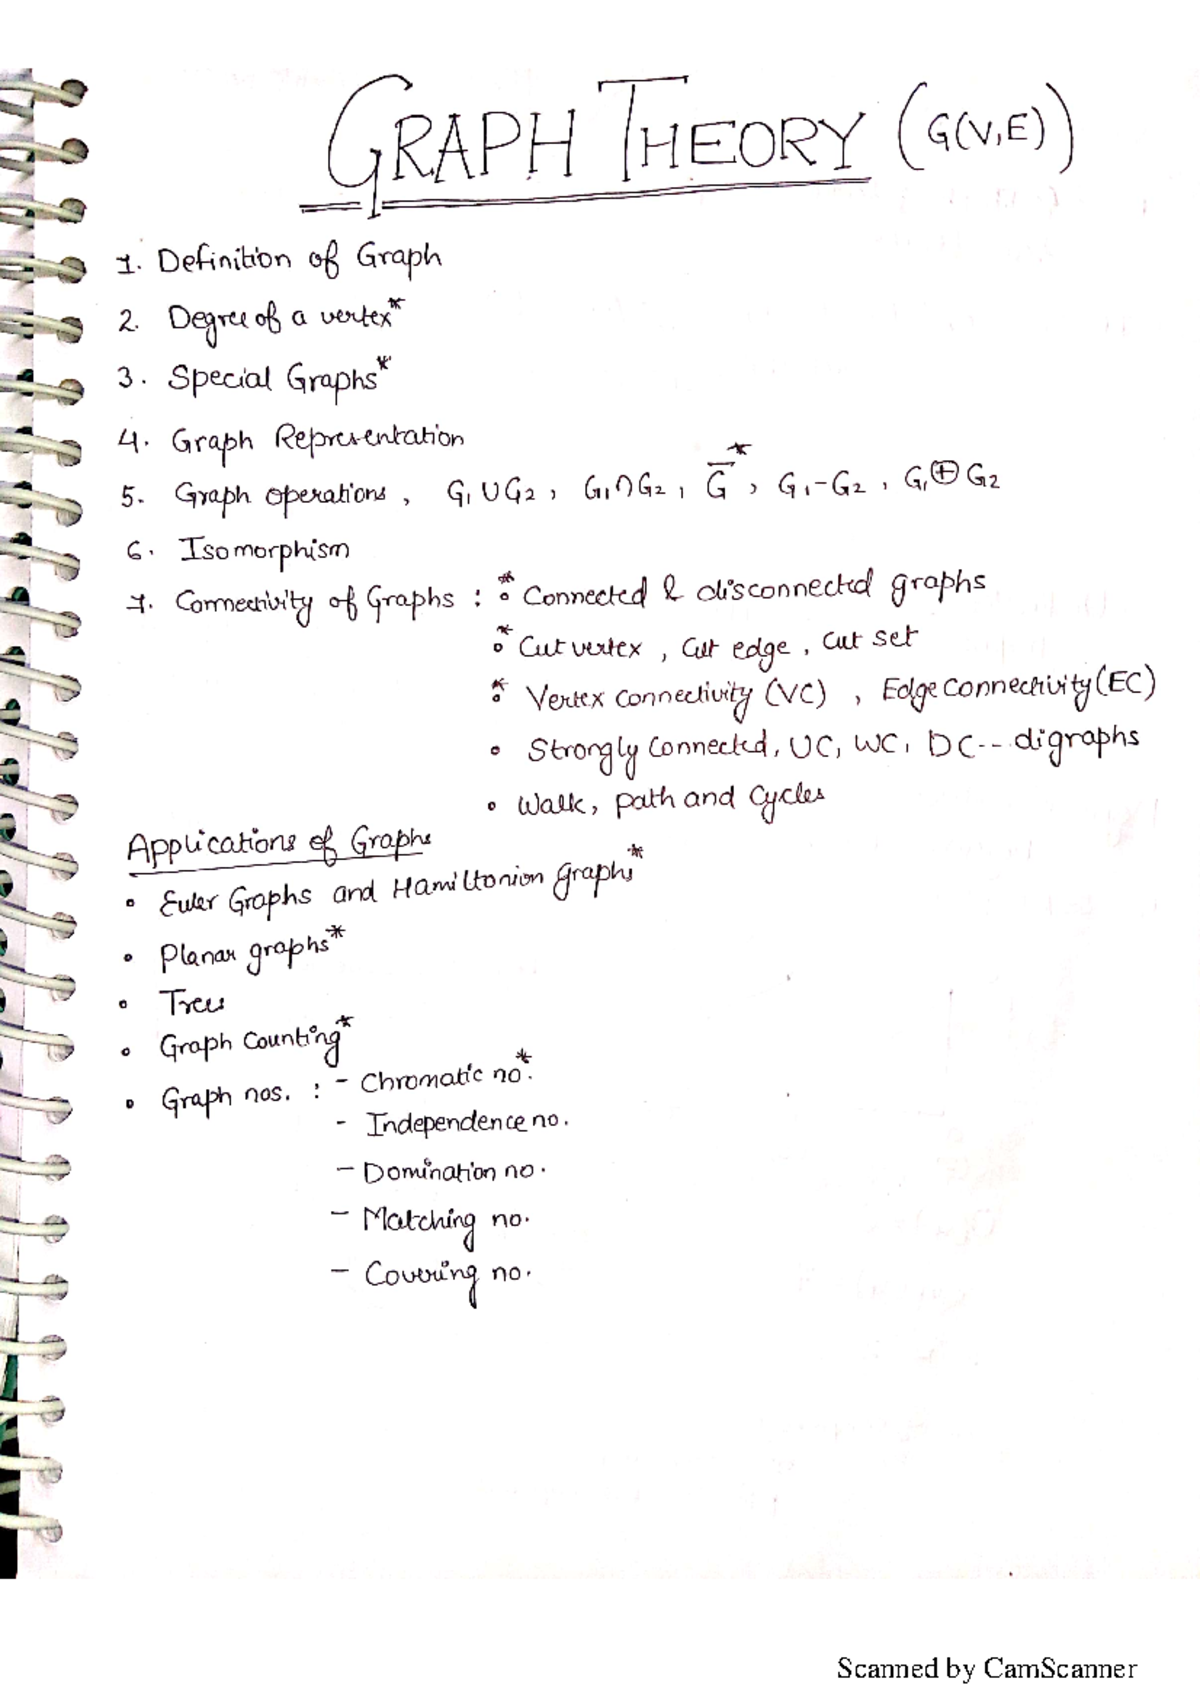 GRAPH THEORY (G(V,E))
1. Definition of Graph
2. Degree of a vertex*
3. Special Graphs*
4. Graph Representation
5. Graph operations, G₁∪G₂, G₁∩G₂, G̅*, G₁-G₂, G₁⊕G₂
6. Isomorphism
7. Connectivity of Graphs : * ∘ Connected & disconnected graphs
* ∘ Cut vertex, Cut edge, Cut set
* ∘ Vertex connectivity (VC), Edge Connectivity (EC)
∘ Strongly Connected, UC, WC, DC-- digraphs
∘ Walk, path and Cycles
Applications of Graphs
∘ Euler Graphs and Hamiltonion Graphs*
∘ Planar graphs*
∘ Trees
∘ Graph Counting*
∘ Graph nos. : - Chromatic no.*
- Independence no.
- Domination no.
- Matching no.
- Covering no.
Scanned by CamScanner